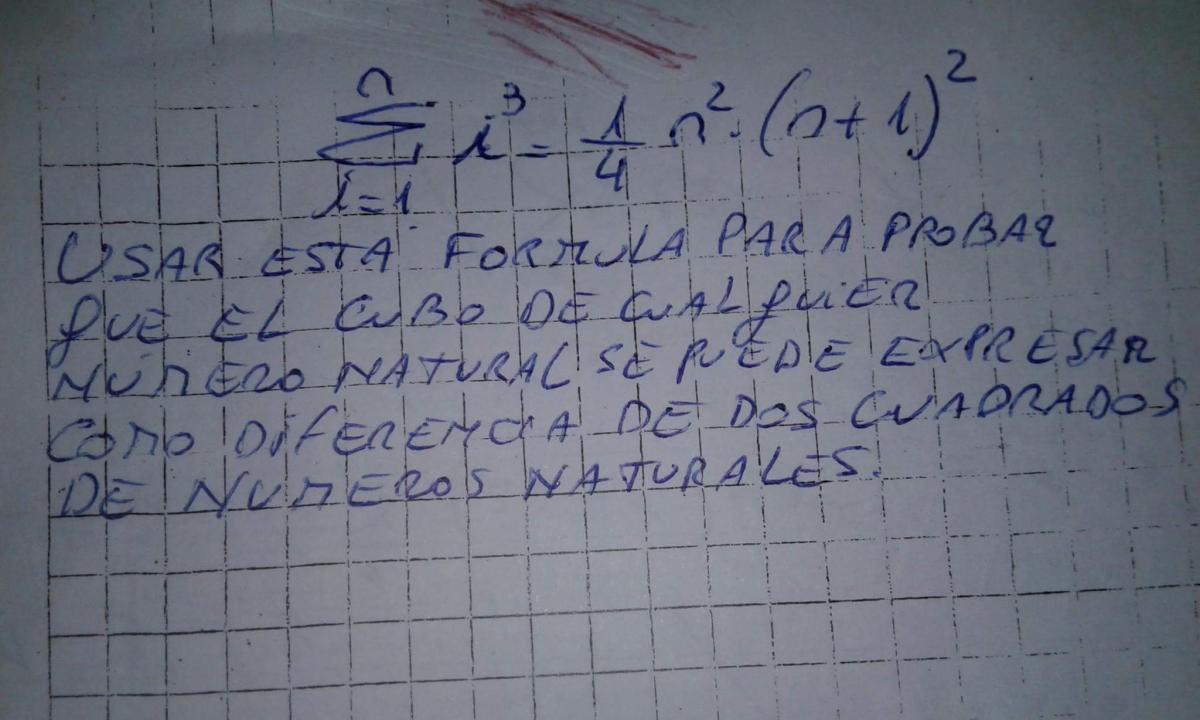 n
∑ i³ = 1/4 n² · (n + 1)²
i=1
USAR ESTA FORMULA PARA PROBAR
QUE EL CUBO DE CUALQUIER
NÚMERO NATURAL SE PUEDE EXPRESAR
COMO DIFERENCIA DE DOS CUADRADOS
DE NUMEROS NATURALES.